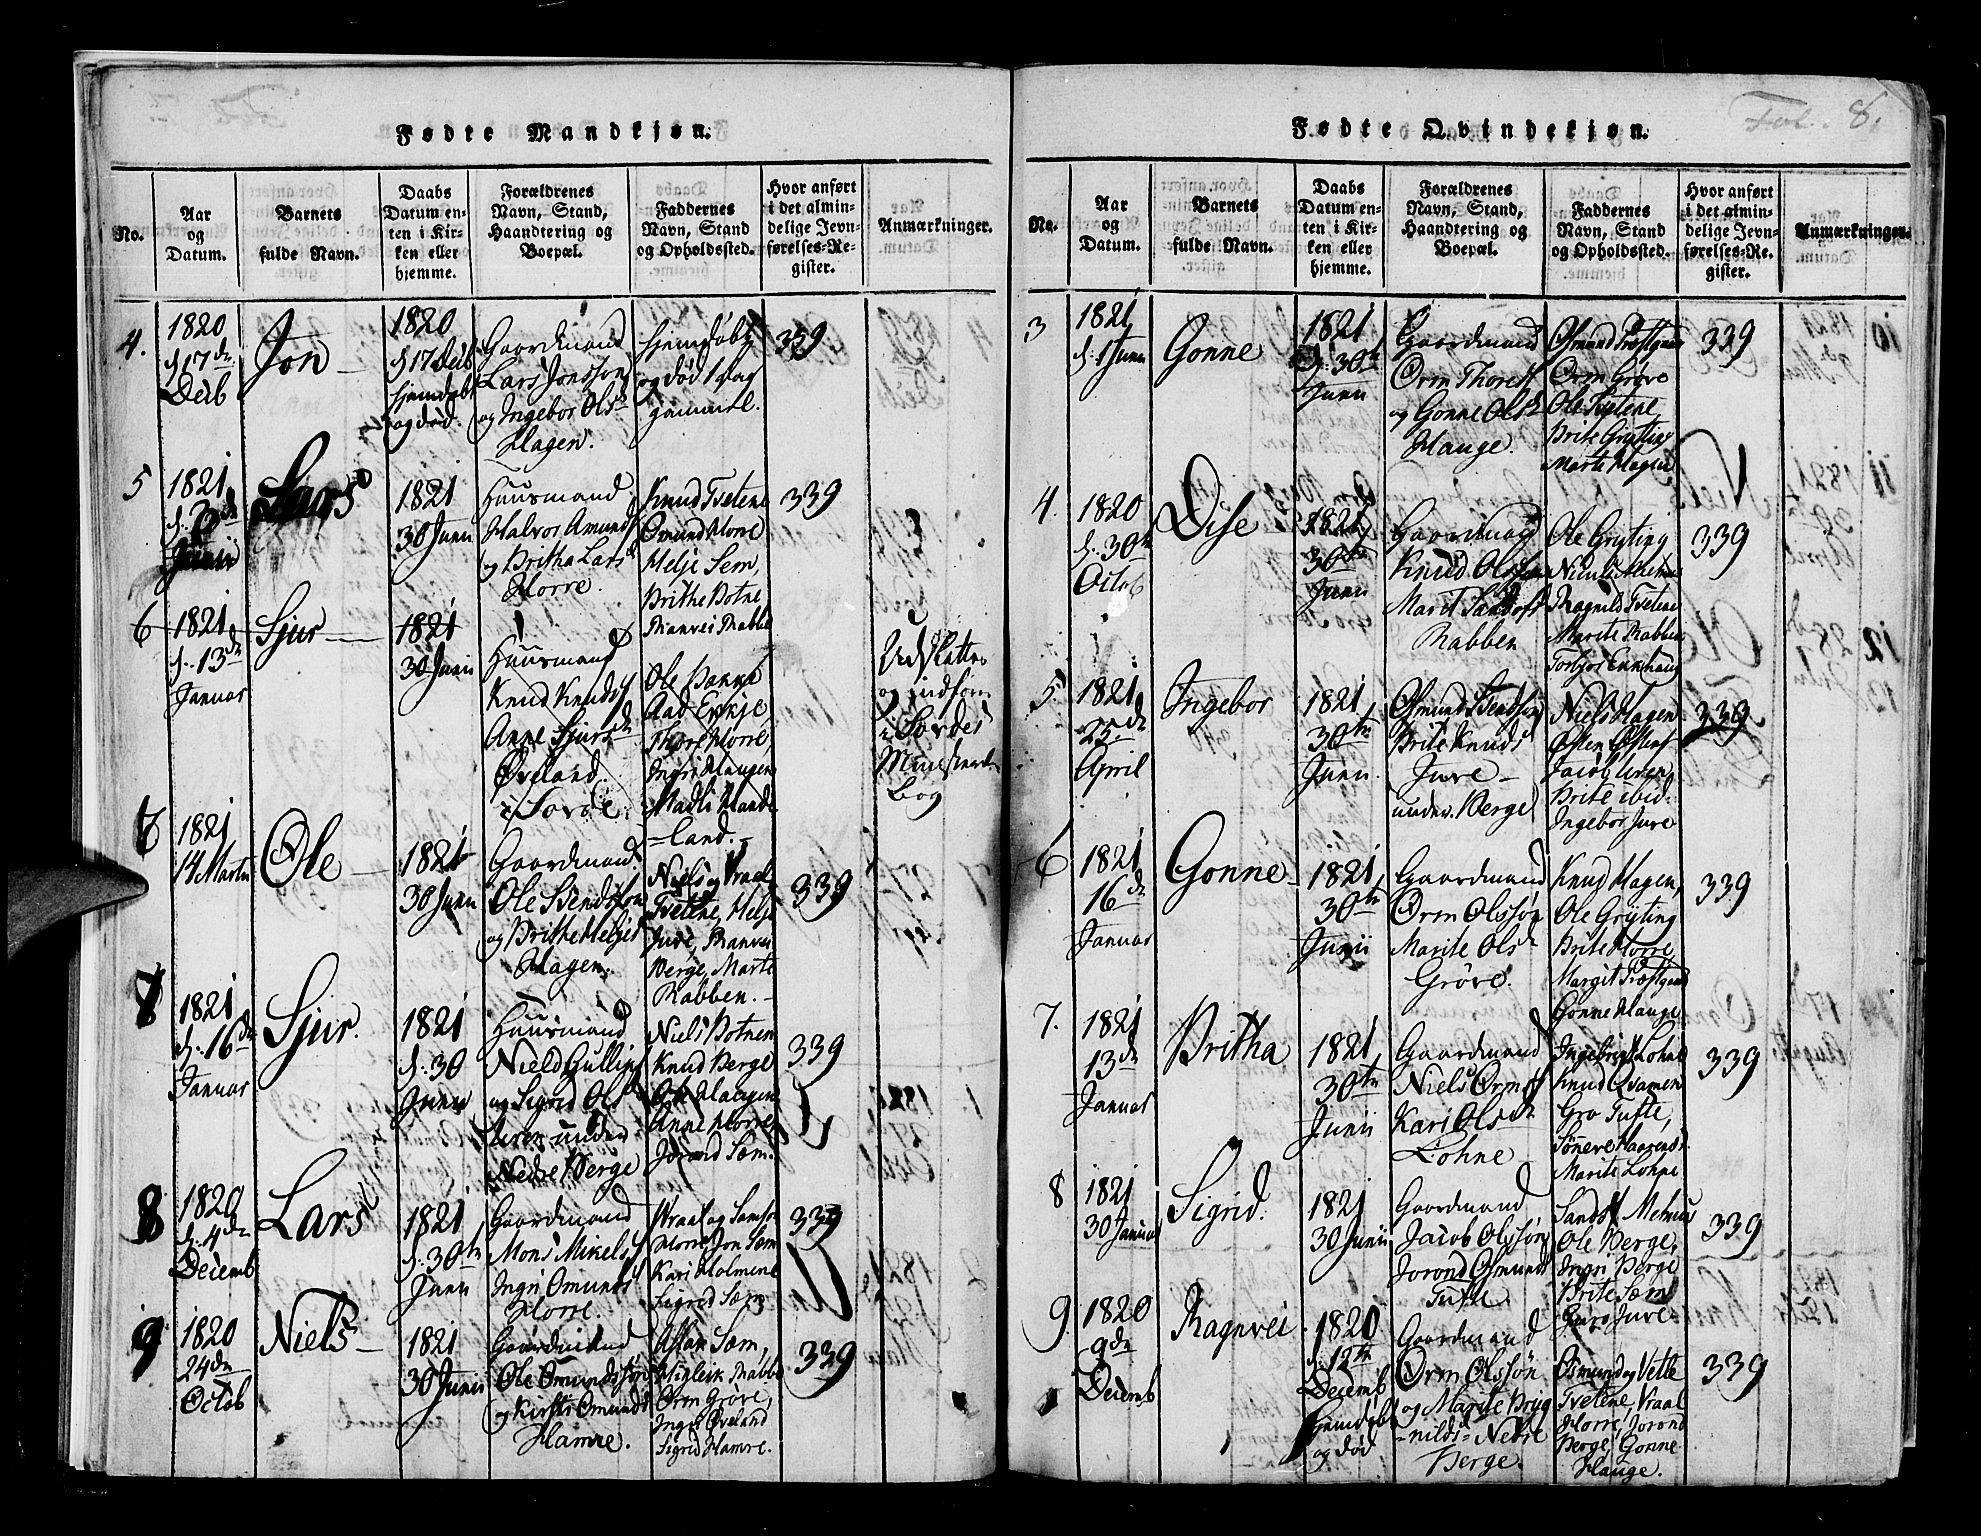 Fødte Mandkjøn.
No.
Aar
og
Datum.
Barnets
fulde Navn.
Daabs
Datum en-
ten i Kir-
ken eller
hjemme.
Forældrenes
Navn, Stand,
Haandtering og
Boepæl.
Faddernes
Navn, Stand
og Opholdssted.
Hvor anført
i det almin-
delige Jevn-
førelses-Re-
gister.
Anmærkninger.
4.
1820
d. 17de
Decb
Jon
1820
d. 17 Decb
hjemdøbt
og død.
Gaardmand
Lars Jonsson
og Ingebor Olsd
Hagen.
hjemdøbt
og død 1 dag
gammel.
339
5
1821
Junii
Lars
1821
30 Junii
Huusmand
Halvor Amunds
og Britha Larsd
Horre.
Knud Tvetene
Omund Horre
Helje Sem,
Brithe Botne
Ranvei Rabbe
339
6
1821
d. 13de
Januar
Sjur
1821
30 Junii
Huusmand
Knud Knuds
Anne Sjursd
Øveland
i Sovde.
Ole Bakke
Aad Eskje
Thore Horre,
Ingri Haugen
Madli Mande
-land.-
Udslattes
og indføres
i Sovdes
Ministerial
Bog
7
1821
14 Martii
Ole
1821
30 Junii
Gaardmand
Ole Svendsøn
og Brithe Heljes
Hagen.
Niels og Vraal
Tvetene, Helje
Jure, Ranvei
Berge, Marte
Rabben.-
339
1821
d. 16de
Januar
Sjur.
1821
d. 30
Junii
Huusmand
Niels Gulliks
og Sigrid Olsd
Uren under
Nedre Berge
Niels Botnen
Knud Berge
Ole Haugen
Anne Horre
Jorand Sæm.
339
8
1820
d. 4de
Decemb
Lars
1821
d. 30te
Junii
Gaardmand
Mons Mikels
Ingri Omunds
Horre
Vraal og Samson
Horre, Jon Sæm
Kari Holmene
Sigrid Sæm
339
9
1820
24de
Octob
Niels
1821
30 Junii
Gaardmand
Ole Omundssøn
og Kirsti Omundsd
Hamre.
Aslak Sæm,
Migleik Rabbe
Orm Grøve,
Ingri Øveland
Sigrid Hamre.
339
Fødte Qvindekjøn.
Fol. 8.
No.
Aar
og
Datum.
Barnets
fulde Navn.
Daabs
Datum en-
ten i Kir-
ken eller
hjemme.
Forældrenes
Navn, Stand,
Haandtering og
Boepæl.
Faddernes
Navn, Stand
og Opholdssted.
Hvor anført
i det almin-
delige Jevn-
førelses-Re-
gister.
Anmærkninger.
3
1821
d. 1 Junii
Gonne
1821
d. 30te
Junii
Gaardmand
Orm Thores
og Gonne Olsd
Hauge.
Osmund Trøstgaar
Orm Grøve
Ole Tvetene,
Brite Gryting
Marte Hagen
339
4.
1820
d. 30te
Octob
Dise
1821
30te
Junii
Gaardmand
Knud Olssøn
Marit
Rabben
Ole Gryting
Ragnild Tvetene
Marite Rabben
339
5
1821
25de
April
Ingebor
1821
30te
Junii
Osmund Svendsøn
Brite Knudsd
Jure-
under Berge
Niels Hagen
Østen Østens
Jacob Uren
Brite ibid.
Ingebor Jure
339
6
1821
16de
Januar
Gonne
1821
30te
Junii
Gaardmand
Orm Olssøn
Marite Olsd
Grøve.
Knud Hagen,
Ole Gryting
Brite Horre
Margit Trøstgaar
Gonne Hauge
339
7.
1821
13de
Januar
Britha
1821
30te
Junii
Gaardmand
Niels Orms
Kari Olsd
Lohne
Ingebrigt Lohne
Knud Qvamen
Gro Tufte,
Marite Lohne
339
8
1821
30 Januar
Sigrid.
1821
30 Junii
Gaardmand
Jacob Olssøn
Jorond Osmunds
Tufte
Ole Berge,
Ingri Berge
Brite Sæm
Guro Jure
339
9
1820
9de
Decemb
Ragnvei
1820
d. 12te
Decemb
hjemdøbt
og død
Gaardmand
Orm Olssøn
og Marite Bryg
-nilds- Nedre
Berge.
Osmund og Vetle
Tvetene, Vraal
Horre, Jorond
Berge, Gonne
Hauge.
339